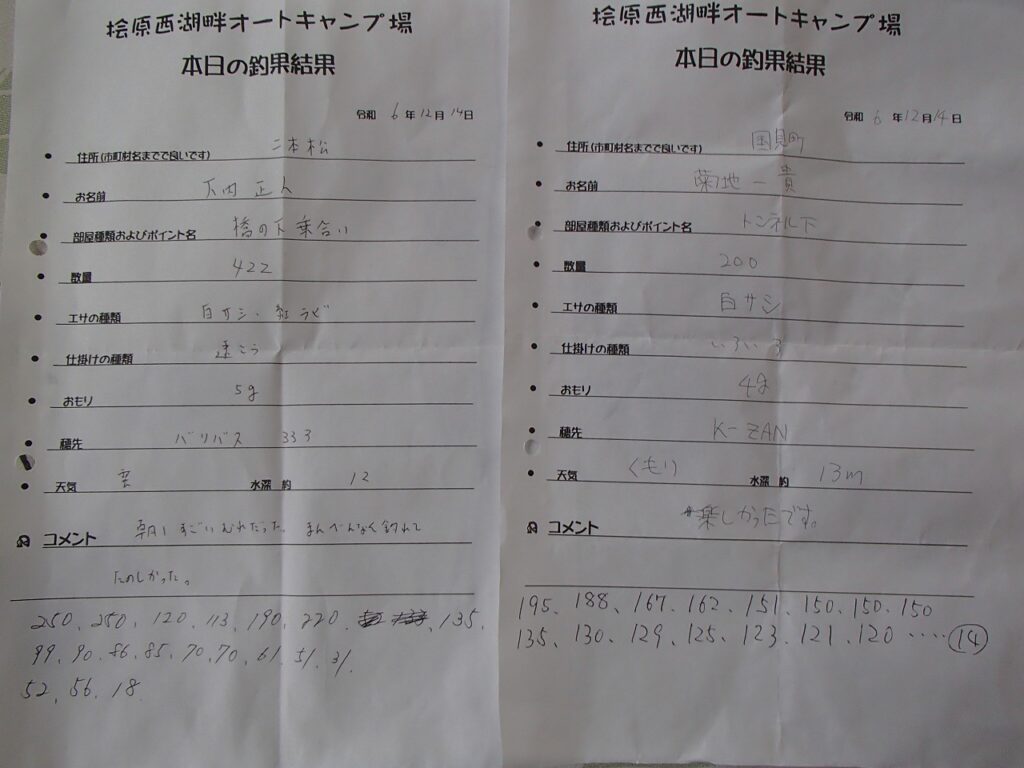 桧原西湖畔オートキャンプ場
本日の釣果結果
令和 6 年 12 月 14 日
• 住所(市町村名までで良いです) 二本松
• お名前 正人
• 部屋種類およびポイント名 橋の下 乗合い
• 数量 422
• エサの種類 白サシ、紅ラビ
• 仕掛けの種類
• おもり 5g
• 穂先 バリバス 333
• 天気 雲 水深 約 12
コメント 朝1 すごいむれだった。まんべんなく釣れて
たのしかった。
250、250、120、113、190、220、135、
99、90、86、85、70、70、61、51、31、
52、56、18
桧原西湖畔オートキャンプ場
本日の釣果結果
令和 6 年 12 月 14 日
• 住所(市町村名までで良いです) 国見町
• お名前 菊地 一貴
• 部屋種類およびポイント名 トンネル下
• 数量 200
• エサの種類 白サシ
• 仕掛けの種類 いろいろ
• おもり 4g
• 穂先 K-ZAN
• 天気 くもり 水深 約 13m
コメント 楽しかったです。
195、188、167、162、151、150、150、150
135、130、129、125、123、121、120 ‥‥ ⑭